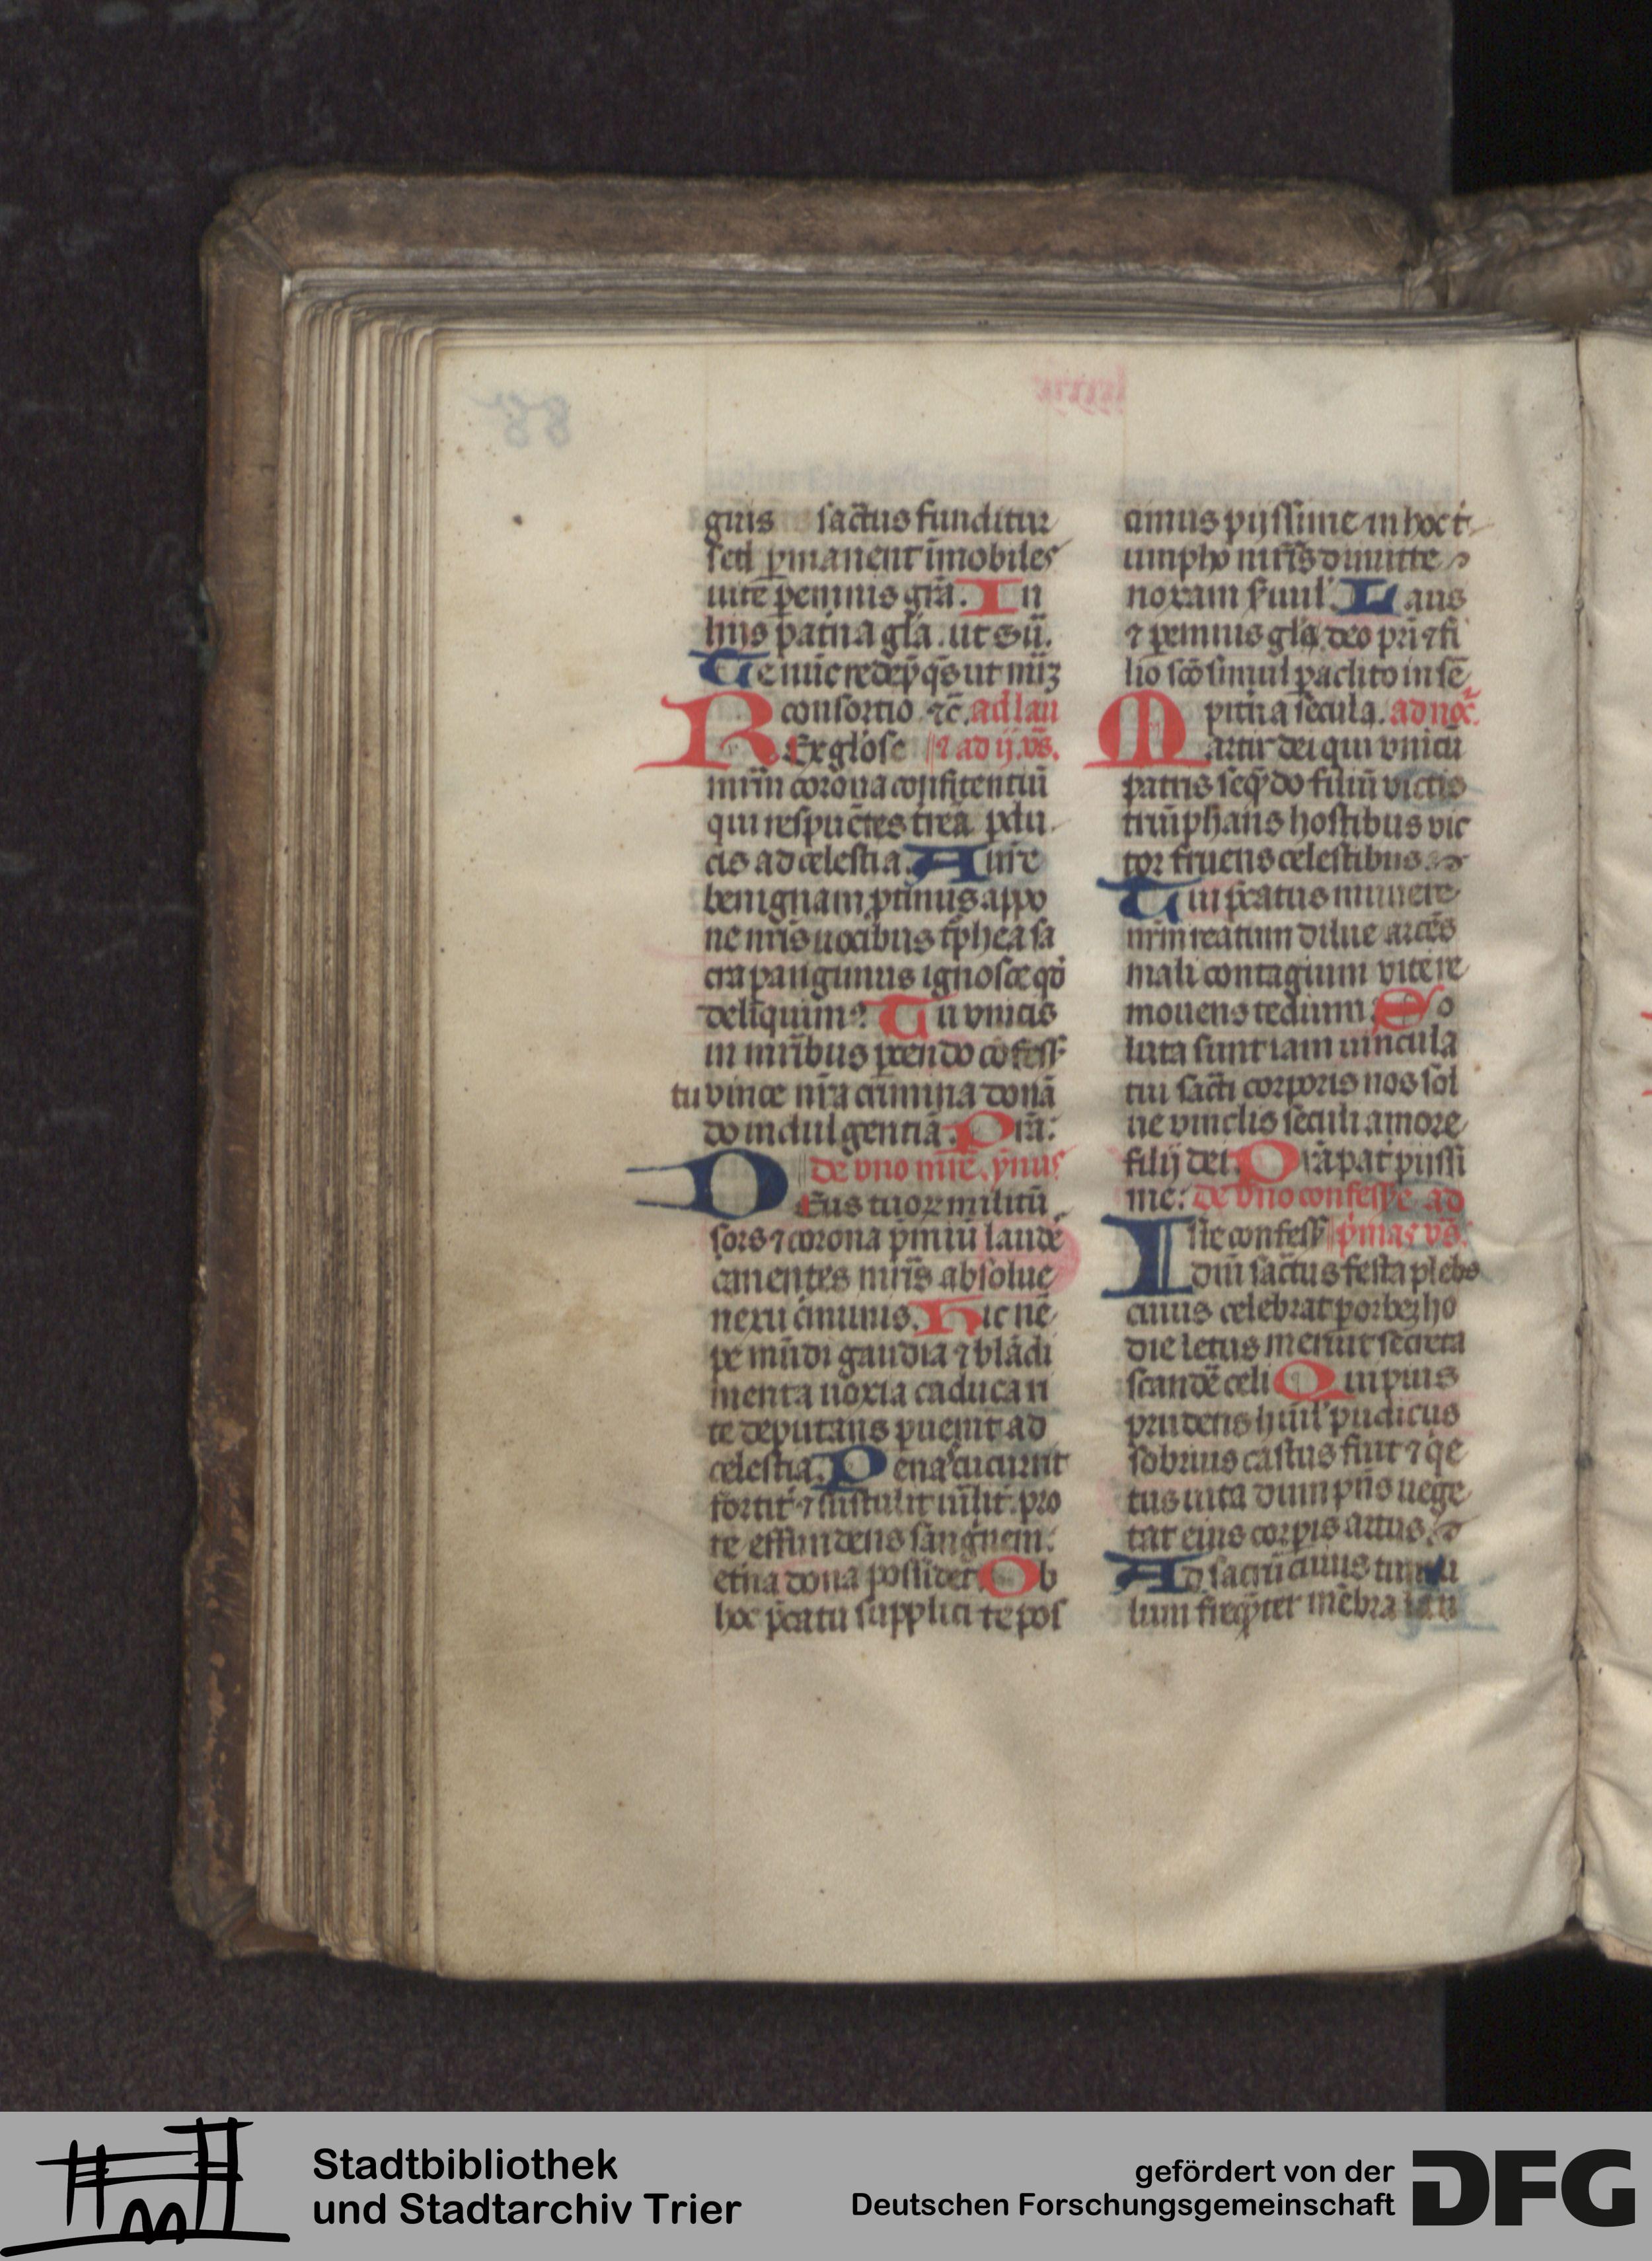 guis sāctus funditur
sed ꝑmanent īmobiles
uite ꝑennis grā. In
hiis patna glā. ut sū.
Te nūc redēp̄ q̄s ut mīꝫ
consortio ⁊c̄. ad lau
Rex gl'ose ⁊ ad ij. vs̄.
mr̄m corona confitentiū
qui respuētes trēā ꝑdu
cis ad celestia. Aurē
benignam ꝓtinus appo
ne nr̄is uocibus tͥphea sa
cra pangimus ignosce qd̓
deliquim⁹. Tu vincis
in mr̄ibus ꝑcendo cōfess
tu vince nr̄a crīmina donā
do indulgentiā. P̄rā:
de vno mr̄e. ẏnus
Deus tuoꝝ militū
sors ⁊ corona p̄miū laudē
canentes mr̄is absolue
nexu cͥminis. Hic nē
pe mūdi gaudia ⁊ blādi
menta noxia caduca ri
te deputans ꝑuenit ad
celestia. Penas cucurrit
fortit̓ ⁊ sustulit uīlit̓. pro
te effundens sangͥnem:
etn̄a dona possidet. Ob
hoc p̄catu supplici te pos
cimus pijssime in hoc tͥ
umpho mr̄is dimitte
noxam suul'. Laus
⁊ ꝑennis glā deo pr̄i ⁊ fi
lio scō simul paclito in sē
pitn̄a secula. ad noc̄.
Martir dei qui vnicū
patris seqͣdo filiū victis
triūphans hostibus vic
tor fruens celestibus.
Tui p̄catus munere
nr̄m reatum dilue arcēs
mali contagium vite re
mouens tedium. So
luta sunt iam uincula
tui sacͭi corporis nos sol
ue vinclis seculi amore
filij dei. P̄rā pat̓ pijssi
me: de vno confess̓e ad
Iste confess̓ pͥmas vs̄.
dn̄i sāctus festa plebs
cuius celebrat ꝑ orbeꝫ ho
die letus meruit secreta
scandē celi Qui pius
prudens hūil' pudicus
sobrius castus fuit ⁊ qͥe
tus uita dum pn̄s uege
tat eius corꝑis artus.
Ad sacrū cuius tumu
lum freqͣter mēbra lan
Stadtbibliothek
und Stadtarchiv Trier
gefördert von der
Deutschen Forschungsgemeinschaft
DFG